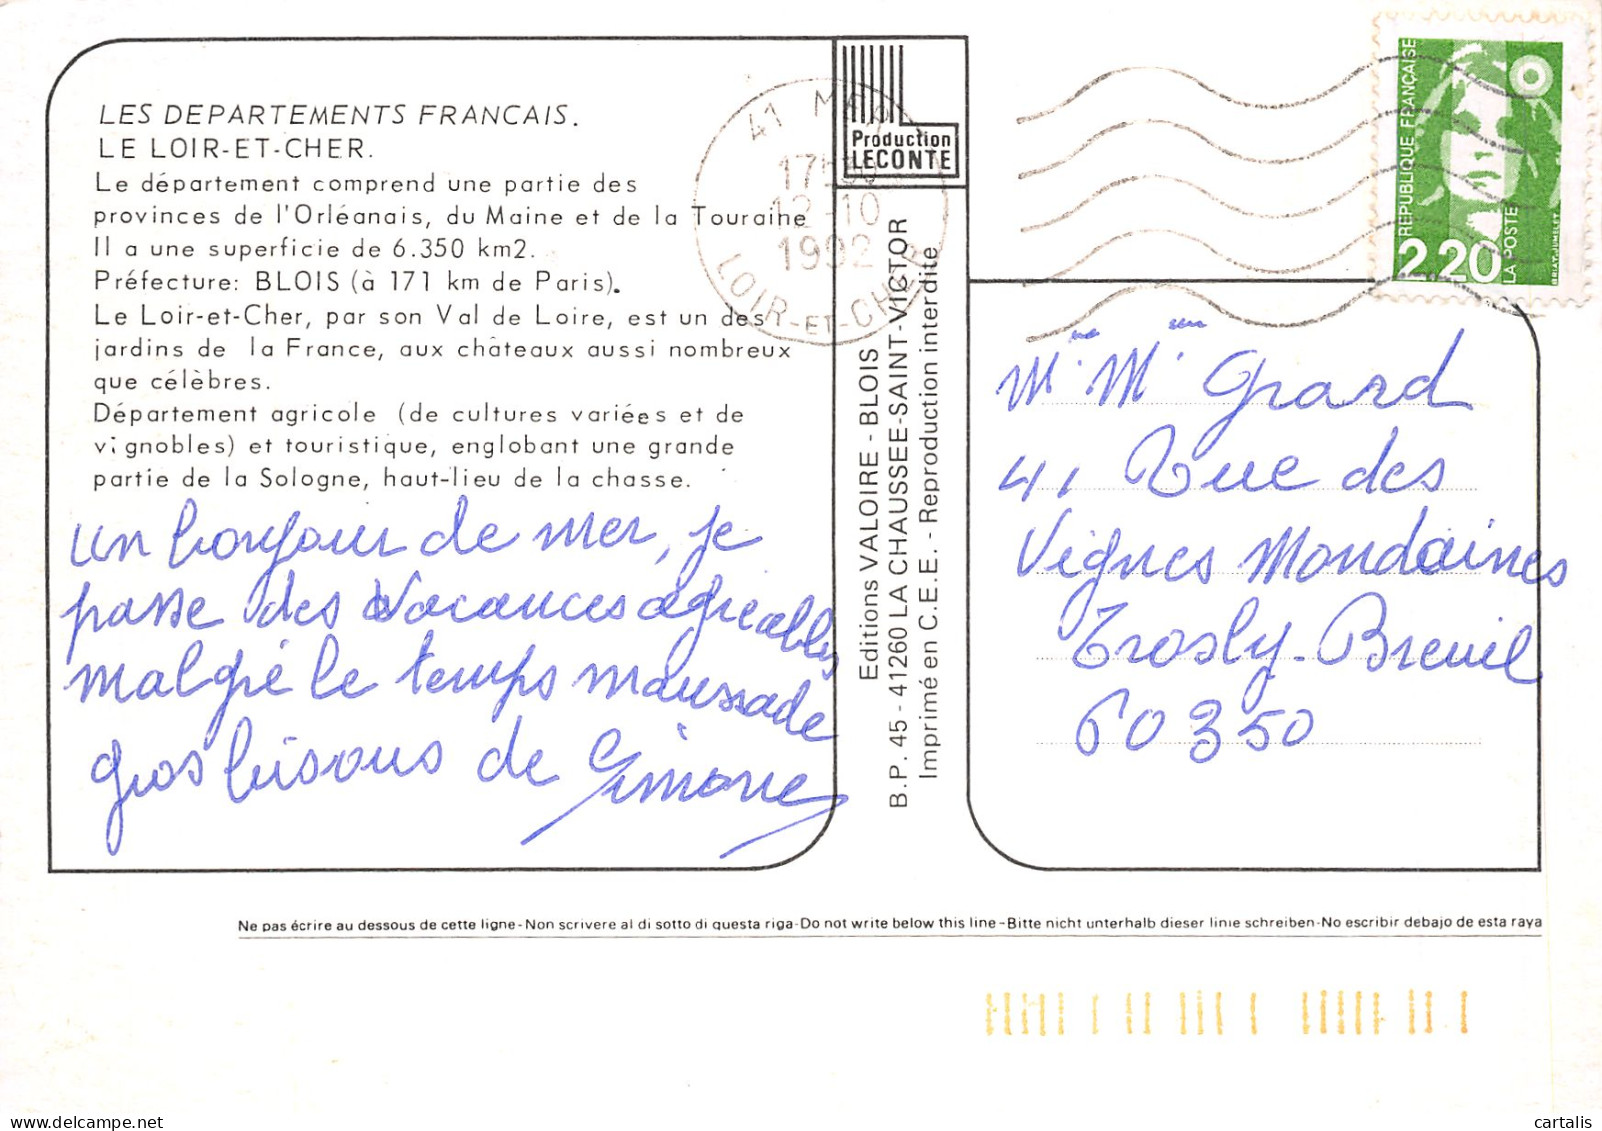 LES DEPARTEMENTS FRANCAIS.
LE LOIR-ET-CHER.
Le département comprend une partie des
provinces de l'Orléanais, du Maine et de la Touraine
Il a une superficie de 6.350 km2.
Préfecture: BLOIS (à 171 km de Paris).
Le Loir-et-Cher, par son Val de Loire, est un des
jardins de la France, aux châteaux aussi nombreux
que célèbres.
Département agricole (de cultures variées et de
vignobles) et touristique, englobant une grande
partie de la Sologne, haut-lieu de la chasse.
un bonjour de mer, je
passe des vacances agréables
malgré le temps maussade
gros bisous de Simone
41 MER
17H30
12-10
1992
LOIR-ET-CHER
Production
LECONTE
Editions VALOIRE - BLOIS
B.P. 45 - 41260 LA CHAUSSEE-SAINT-VICTOR
Imprimé en C.E.E. - Reproduction interdite
REPUBLIQUE FRANÇAISE
2,20
LA POSTE
BRIAT-JUMELET
Mme Mr Grard
41 rue des
Vignes Mondaines
Trosly-Breuil
60350
Ne pas écrire au dessous de cette ligne-Non scrivere al di sotto di questa riga-Do not write below this line-Bitte nicht unterhalb dieser linie schreiben-No escribir debajo de esta raya
cartalis
delcampe.net